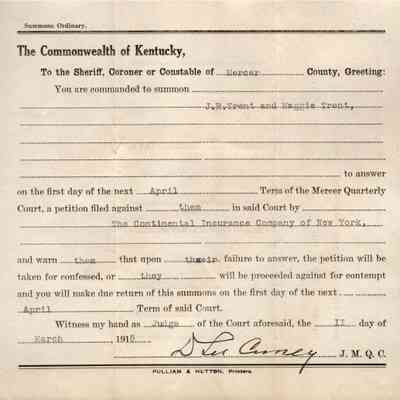 Summons Ordinary.
The Commonwealth of Kentucky,
To the Sheriff, Coroner or Constable of Mercer County, Greeting:
You are commanded to summon
J.R.Trent and Maggie Trent,
to answer
on the first day of the next April Term of the Mercer Quarterly
Court, a petition filed against them in said Court by
The Continental Insurance Company of New York,
and warn them that upon their failure to answer, the petition will be
taken for confessed, or they will be proceeded against for contempt
and you will make due return of this summons on the first day of the next
April Term of said Court.
Witness my hand as Judge of the Court aforesaid, the 11 day of
March 1915
D Lee Curry J. M. Q. C.
PULLIAM & HUTTON, Printers.